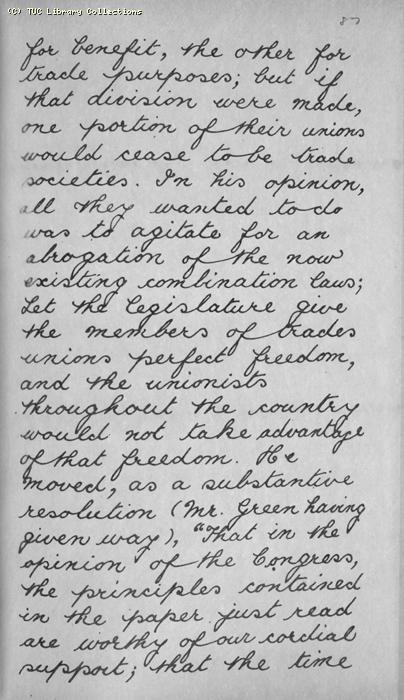 (C) TUC Library Collections
87
for benefit, the other for
trade purposes; but if
that division were made,
one portion of their unions
would cease to be trade
societies. In his opinion,
all they wanted to do
was to agitate for an
abrogation of the now
existing combination laws;
Let the legislature give
the members of trades
unions perfect freedom,
and the unionists
throughout the country
would not take advantage
of that freedom. He
moved, as a substantive
resolution (Mr. Green having
given way), "That in the
opinion of the Congress,
the principles contained
in the paper just read
are worthy of our cordial
support; that the time